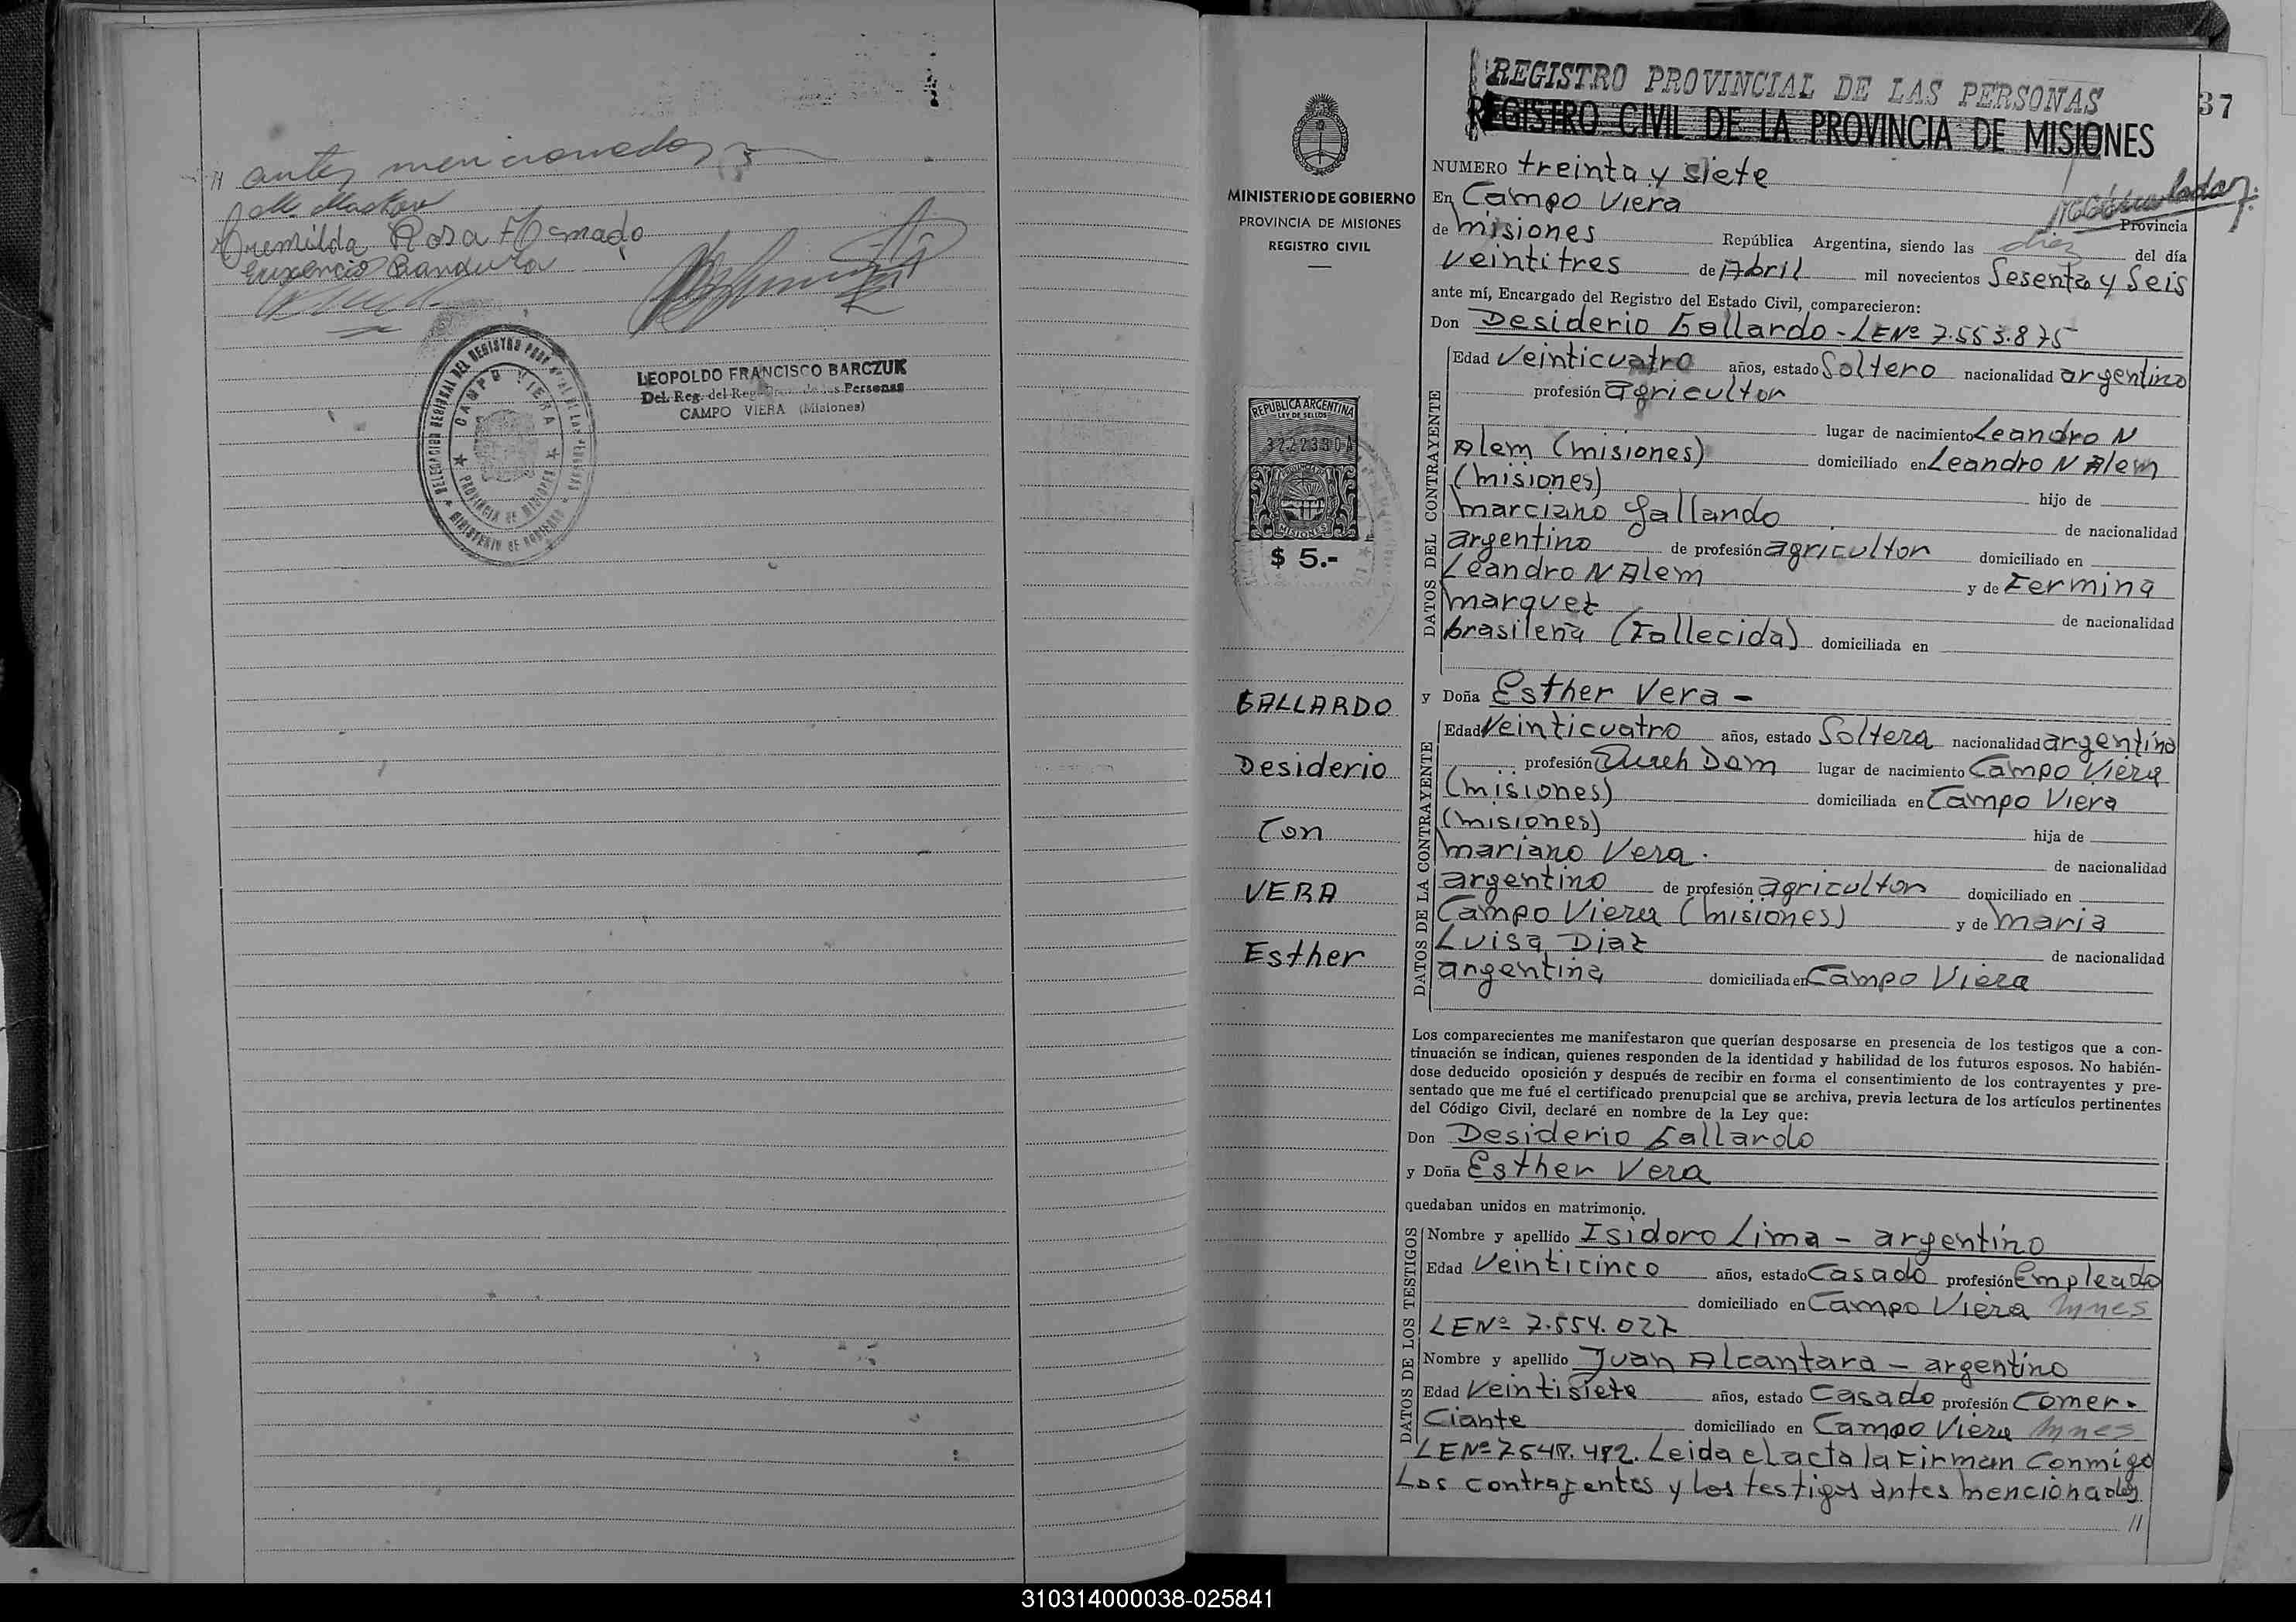 // antes mencionados
Oremilda Rosa Amado
LEOPOLDO FRANCISCO BARCZUK
Del. Reg. del Reg. Prov. de las Personas
CAMPO VIERA (Misiones)
DELEGACION REGIONAL DEL REGISTRO PROVINCIAL DE LAS PERSONAS
CAMPO VIERA
PROVINCIA DE MISIONES
MINISTERIO DE GOBIERNO
MINISTERIO DE GOBIERNO
PROVINCIA DE MISIONES
REGISTRO CIVIL
REPUBLICA ARGENTINA
LEY DE SELLOS
322233 A
MISIONES
$ 5.-
GALLARDO
Desiderio
Con
VERA
Esther
REGISTRO PROVINCIAL DE LAS PERSONAS
37
REGISTRO CIVIL DE LA PROVINCIA DE MISIONES
NUMERO treinta y siete
En Campo Viera Provincia
de Misiones República Argentina, siendo las diez del día
Veintitres de Abril mil novecientos Sesenta y Seis
ante mí, Encargado del Registro del Estado Civil, comparecieron:
Don Desiderio Gallardo - LENº 7.553.875
DATOS DEL CONTRAYENTE
Edad Veinticuatro años, estado Soltero nacionalidad argentino
profesión agricultor
lugar de nacimiento Leandro N
Alem (misiones) domiciliado en Leandro N Alem
(misiones) hijo de
Marciano Gallardo de nacionalidad
argentino de profesión agricultor domiciliado en
Leandro N Alem y de Fermina
Marquez de nacionalidad
brasileña (Fallecida) domiciliada en
y Doña Esther Vera -
DATOS DE LA CONTRAYENTE
Edad Veinticuatro años, estado Soltera nacionalidad argentina
profesión Dom lugar de nacimiento Campo Viera
(misiones) domiciliada en Campo Viera
(misiones) hija de
Mariano Vera. de nacionalidad
argentino de profesión agricultor domiciliado en
Campo Viera (misiones) y de Maria
Luisa Diaz de nacionalidad
argentina domiciliada en Campo Viera
Los comparecientes me manifestaron que querían desposarse en presencia de los testigos que a con-
tinuación se indican, quienes responden de la identidad y habilidad de los futuros esposos. No habién-
dose deducido oposición y después de recibir en forma el consentimiento de los contrayentes y pre-
sentado que me fué el certificado prenupcial que se archiva, previa lectura de los artículos pertinentes
del Código Civil, declaré en nombre de la Ley que:
Don Desiderio Gallardo
y Doña Esther Vera
quedaban unidos en matrimonio.
DATOS DE LOS TESTIGOS
Nombre y apellido Isidoro Lima - argentino
Edad Veinticinco años, estado Casado profesión Empleado
domiciliado en Campo Viera Mnes
LENº 7.554.027
Nombre y apellido Juan Alcantara - argentino
Edad Veintisiete años, estado Casado profesión Comer-
ciante domiciliado en Campo Viera Mnes
LENº 7548.482. Leida el acta la Firman Conmigo
Los contrayentes y los testigos antes mencionados
//
310314000038-025841